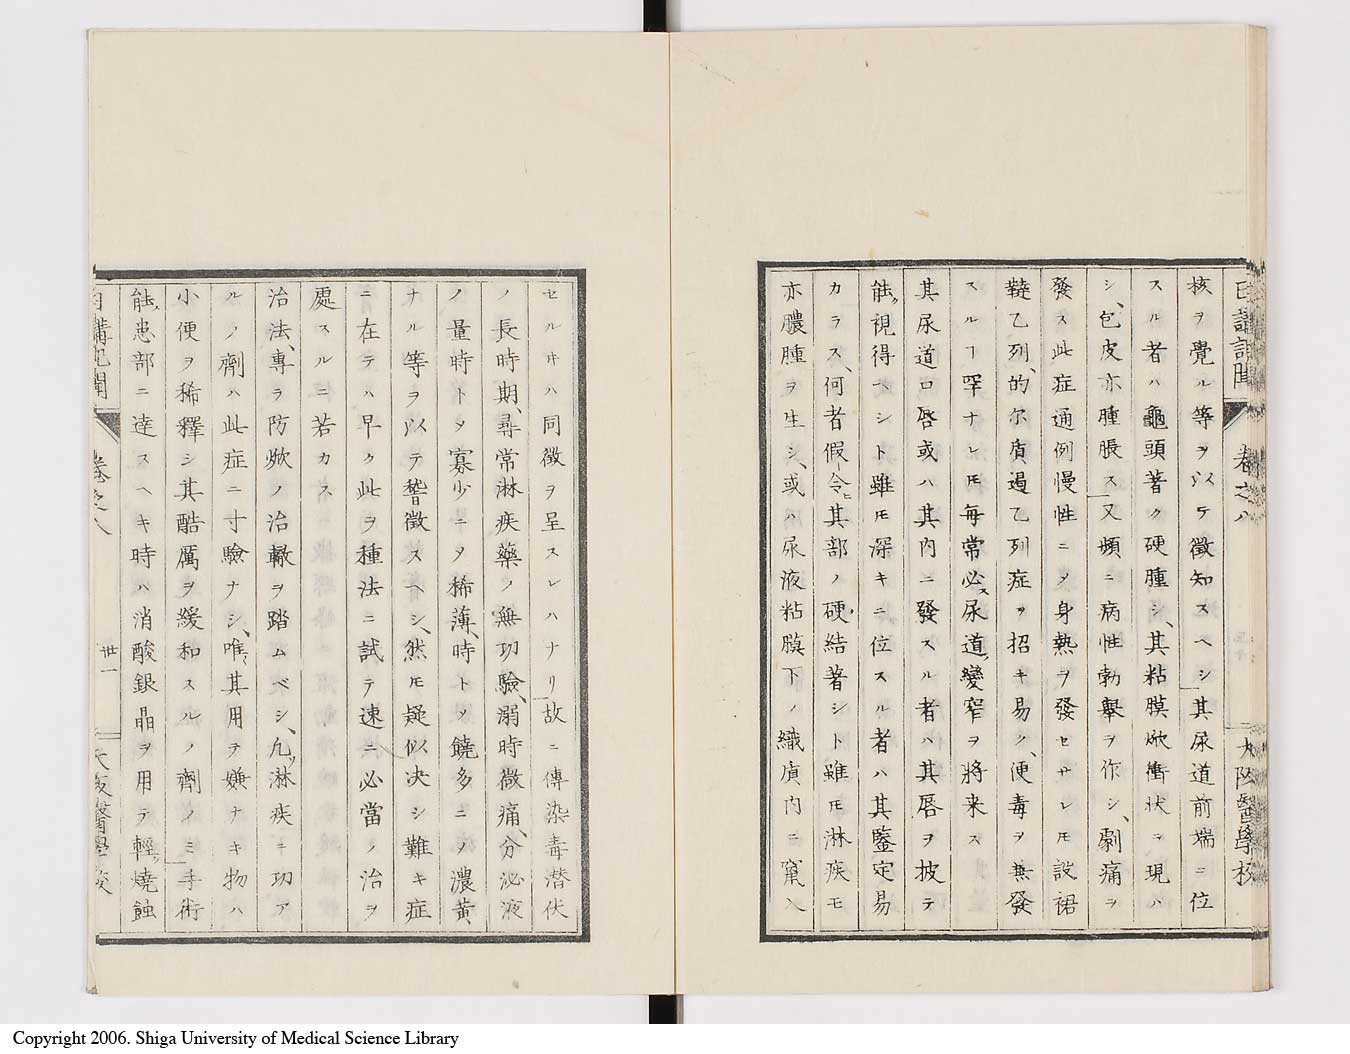 日講記聞 卷之八 大阪醫學校
核ヲ覺ル等ヲ以テ徴知スヘシ其尿道前端ニ位
スル者ハ龜頭著ク硬腫シ、其粘膜焮衝状ヲ現ハ
シ、包皮亦腫脹ス又頻ニ病性勃擧ヲ作シ、劇痛ヲ
發ス此症通例慢性ニメ身熱ヲ發セサレモ設裙
鞑乙列、的尓質過乙列症ヲ招キ易ク、便毒ヲ兼發
スルヿ罕ナレモ毎常必ス尿道變窄ヲ將来ス
其尿道口唇或ハ其内ニ發スル者ハ其唇ヲ披テ
能ク視得ヘシト雖モ深キニ位スル者ハ其鑒定易
カラス、何者假令ヒ其部ノ硬結著シト雖モ淋疾モ
亦膿腫ヲ生シ、或ハ尿液粘膜下ノ織質内ニ竄入
セルヰハ同徴ヲ呈スレハナリ故ニ傳染毒潜伏
ノ長時期、尋常淋疾藥ノ無功驗、溺時微痛、分泌液
ノ量時トメ寡少ニメ稀薄、時トメ饒多ニメ濃黄
ナル等ヲ以テ稽徴スヘシ、然モ疑似决シ難キ症
ニ在テハ早ク此ヲ種法ニ試テ速ニ必當ノ治ヲ
處スルニ若カス
治法、專ラ防焮ノ治轍ヲ踏ムベシ、凢ソ淋疾ニ功ア
ルノ劑ハ此症ニ寸驗ナシ、唯其用ヲ嫌ナキ物ハ
小便ヲ稀釋シ其酷厲ヲ緩和スルノ劑ノミ手術
能ク患部ニ達スヘキ時ハ消酸銀晶ヲ用テ輕ク燒蝕
日講記聞 卷之八 卅一 大阪醫學校
Copyright 2006. Shiga University of Medical Science Library